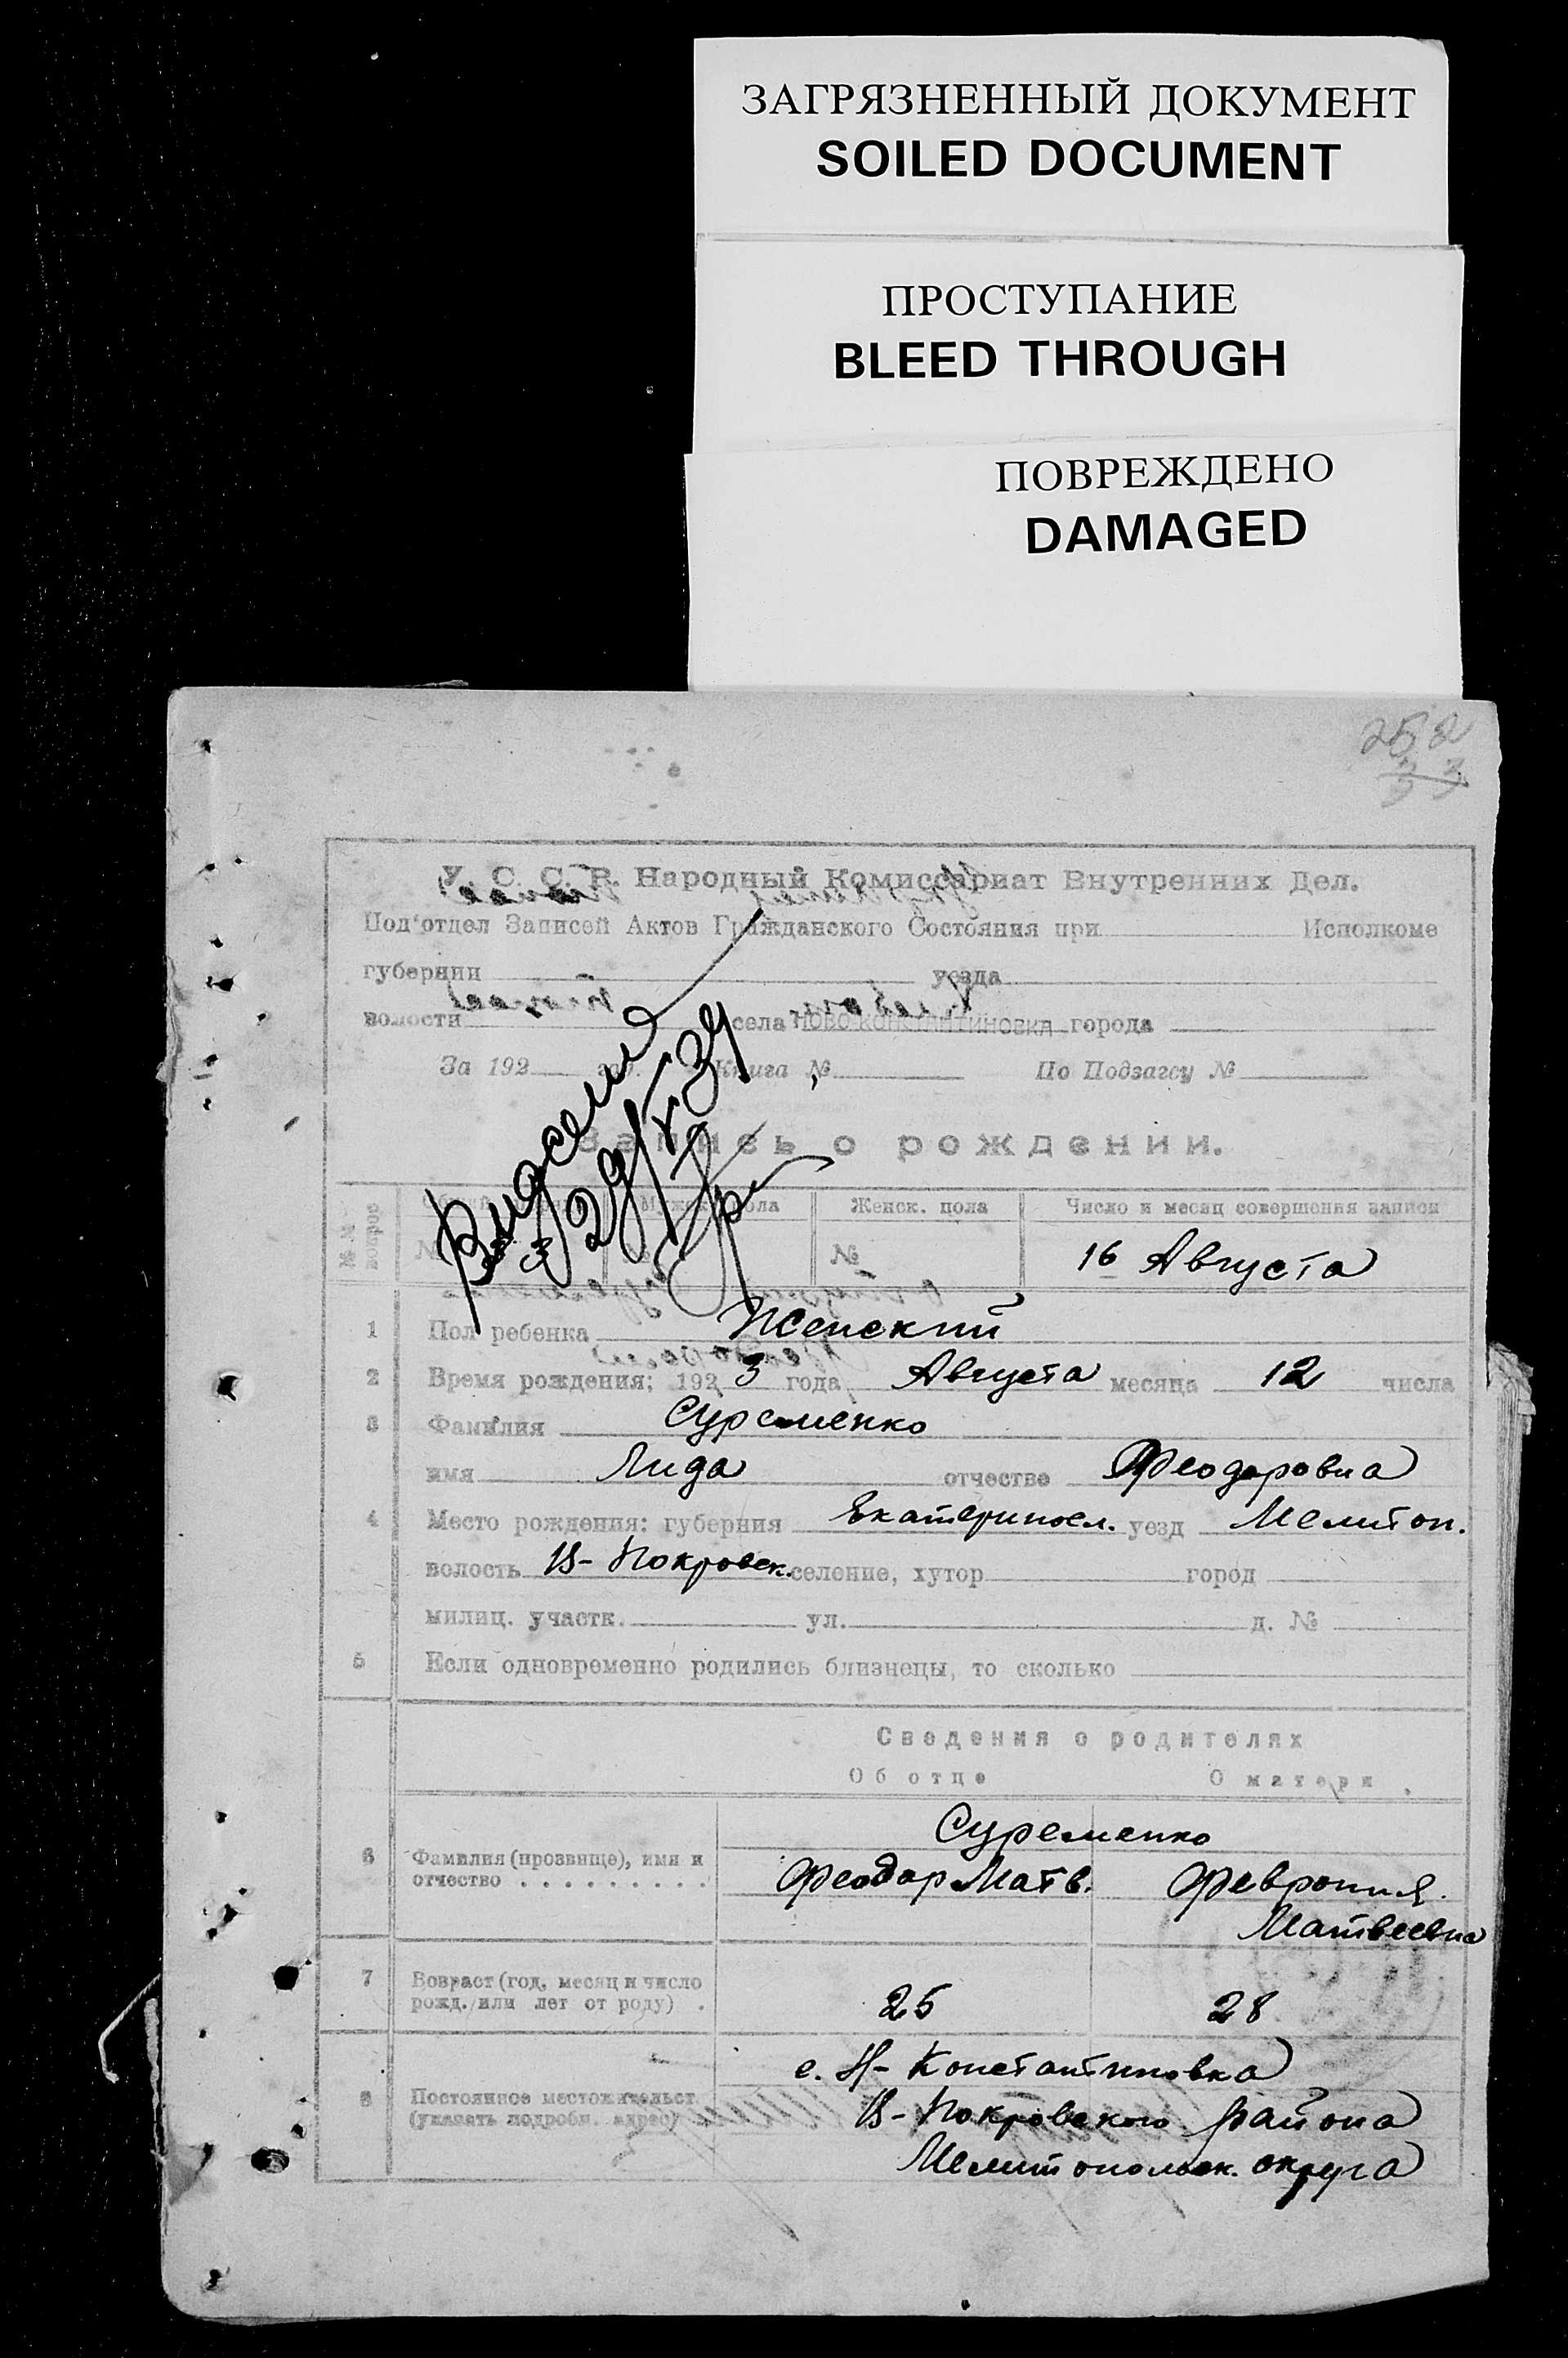 ЗАГРЯЗНЕННЫЙ ДОКУМЕНТ
SOILED DOCUMENT
ПРОСТУПАНИЕ
BLEED THROUGH
ПОВРЕЖДЕНО
DAMAGED
252
33
У. С. С. Р. Народный Комиссариат Внутренних Дел.
Под'отдел Записей Актов Гражданского Состояния при Исполкоме
губернии уезда
волости села НОВО КОНСТАНТИНОВКА города
За 192 год. Книга № По Подзагсу №
29/X 34
Запись о рождении.
№№ вопрос Мужск. пола Женск. пола Число и месяц совершения записи
№ № 16 Августа
1 Пол ребенка Женский
2 Время рождения: 192 3 года Августа месяца 12 числа
3 Фамилия Суременко
имя Лида отчество Феодоровна
4 Место рождения: губерния Екатеринosл. уезд Мелитоп.
волость Н-Покровск. селение, хутор город
милиц. участк. ул. д. №
5 Если одновременно родились близнецы, то сколько
Сведения о родителях
Об отце О матери
Суременко
6 Фамилия (прозвище), имя и отчество Феодор Матв. Феврония
Матвеевна
7 Возраст (год, месяц и число рожд. или лет от роду) 25 28
8 Постоянное местожительст. (указать подробн. адрес) с. Н-Константиновка
Н-Покровского района
Мелитопольск. округа